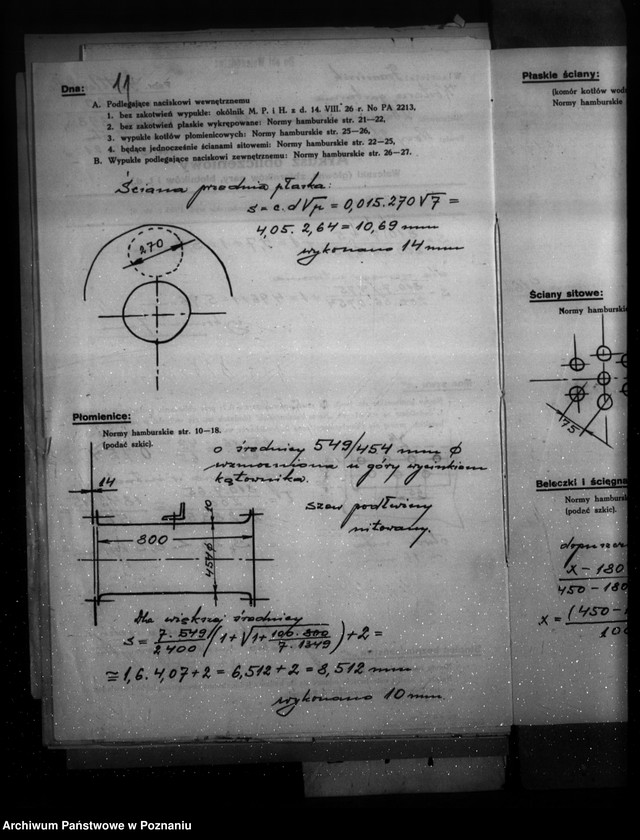 Dna: 11
A. Podlegające naciskowi wewnętrznemu
1. bez zakotwień wypukłe: okólnik M. P. i H. z d. 14. VIII. 26 r. No PA 2213,
2. bez zakotwień płaskie wykrępowane: Normy hamburskie str. 21—22,
3. wypukłe kotłów płomienicowych: Normy hamburskie str. 25—26,
4. będące jednocześnie ścianami sitowemi: Normy hamburskie str. 22—25,
B. Wypukłe podlegające naciskowi zewnętrznemu: Normy hamburskie str. 26—27.
Ściana przednia płaska:
s = c. d √p = 0,015. 270 √7 =
4,05. 2,64 = 10,69 mm
wykonano 14 mm
270
Płomienice:
Normy hamburskie str. 10—18.
(podać szkic).
o średnicy 549/454 mm ϕ
wzmocniona u góry wycinkiem
kątownika.
szew podłużny
nitowany.
14
10
800
454 ϕ
Dla większej średnicy
s = 7. 549/2400 (1 + √1 + 100. 800/7. 1349) + 2 =
≅ 1,6. 4,07 + 2 = 6,512 + 2 = 8,512 mm
wykonano 10 mm.
Płaskie ściany:
(komór kotłów wod
Normy hamburskie
Ściany sitowe:
Normy hamburskie
75
Beleczki i ścięgna
Normy hambursk
(podać szkic).
x − 180
450 − 180
x = (450 −